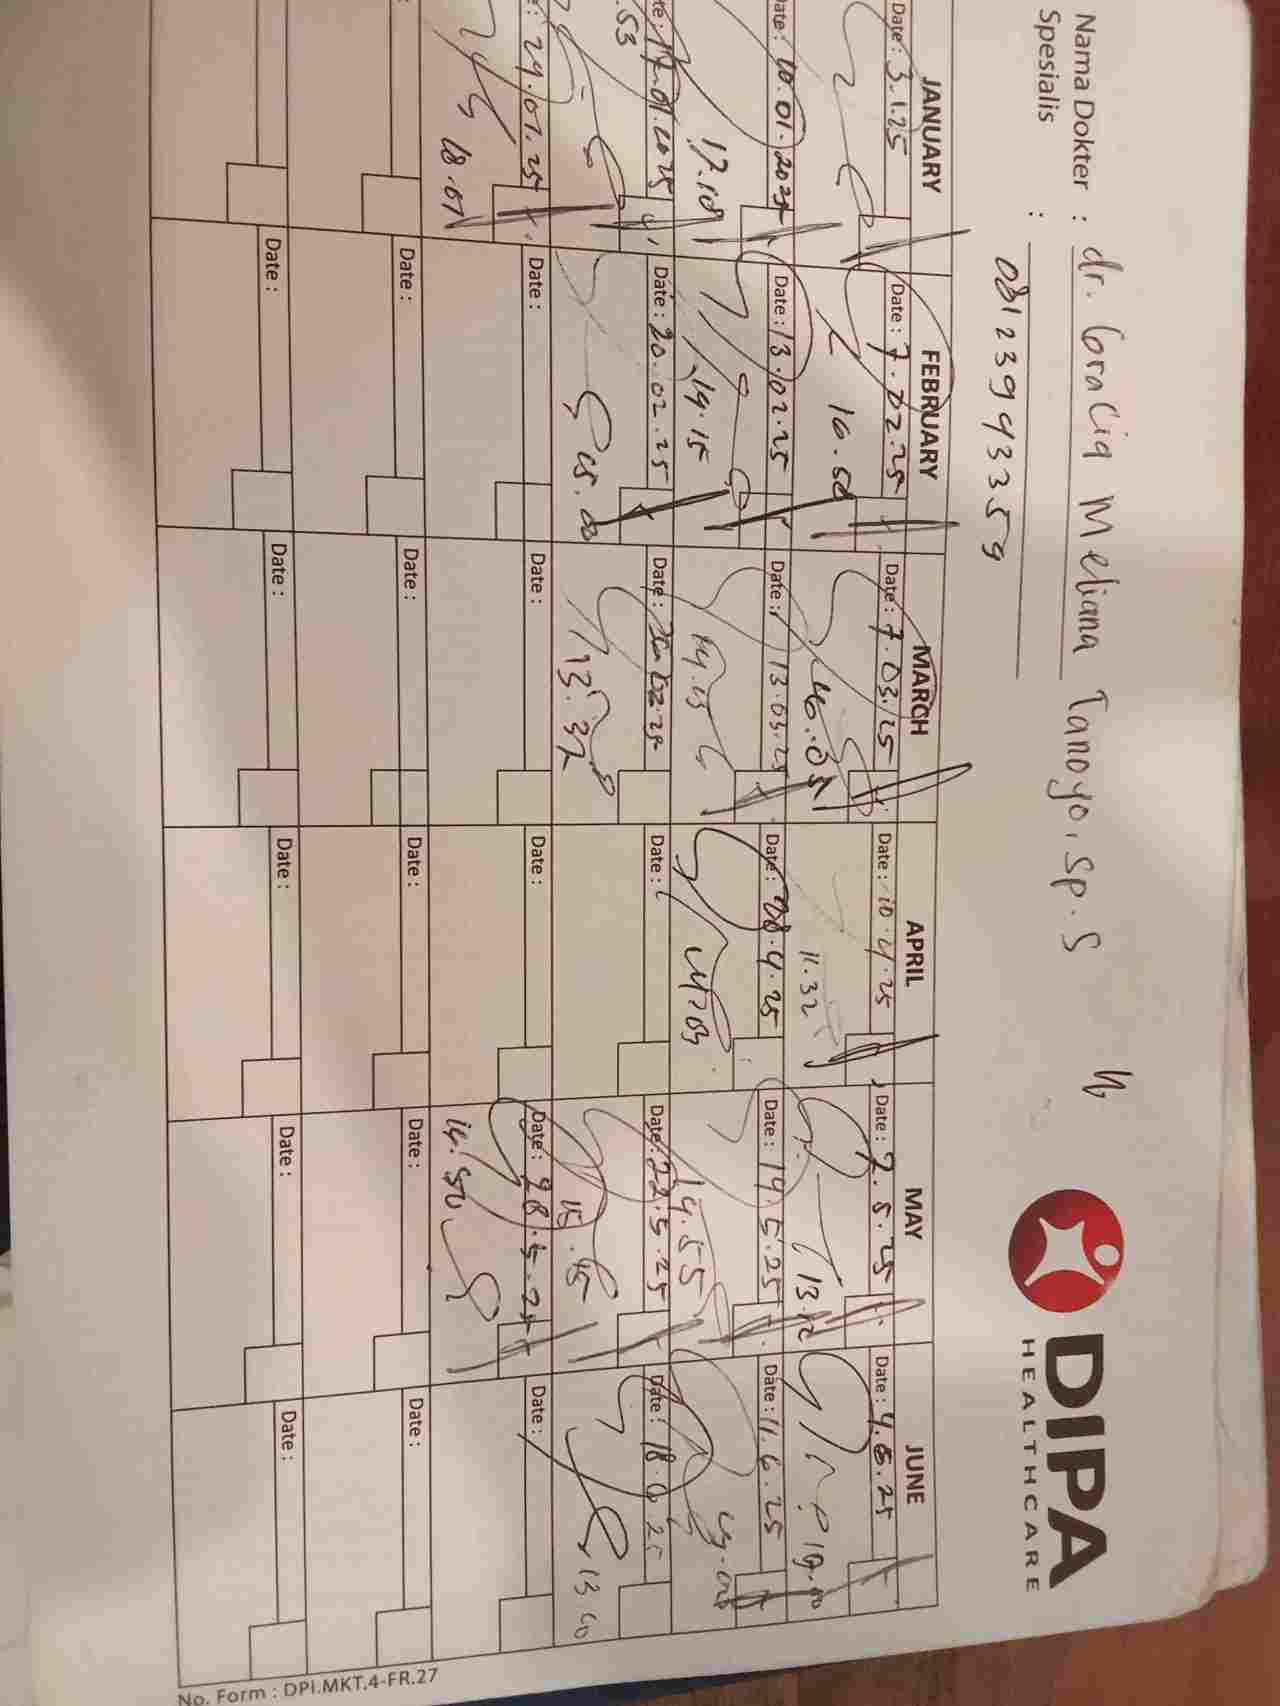 Nama Dokter : dr. Gracia Meliana Tanoyo, Sp.S
Spesialis :
081239943359
DIPA
HEALTHCARE
JANUARY FEBRUARY MARCH APRIL MAY JUNE
Date : 3.1.25 Date : 7.02.25 Date : 7.03.25 Date : 10.4.25 Date : 2.5.25 Date : 4.6.25
10.50 11.32 13.12
Date : 10.01.2025 Date : 13.02.25 Date : 13.03.25 Date : 28.4.25 Date : 14.5.25 Date : 11.6.25
17.18 14.15 14.55
Date : 17.01.2025 Date : 20.02.25 Date : Date : Date : 22.5.25 Date : 18.6.25
.53 15.00 13.37 15.45 13.00
24.01.25 Date : Date : Date : Date : 28.5.25 Date :
18.01 14.50
Date : Date : Date : Date : Date :
Date : Date : Date : Date : Date :
No. Form : DPI.MKT.4-FR.27